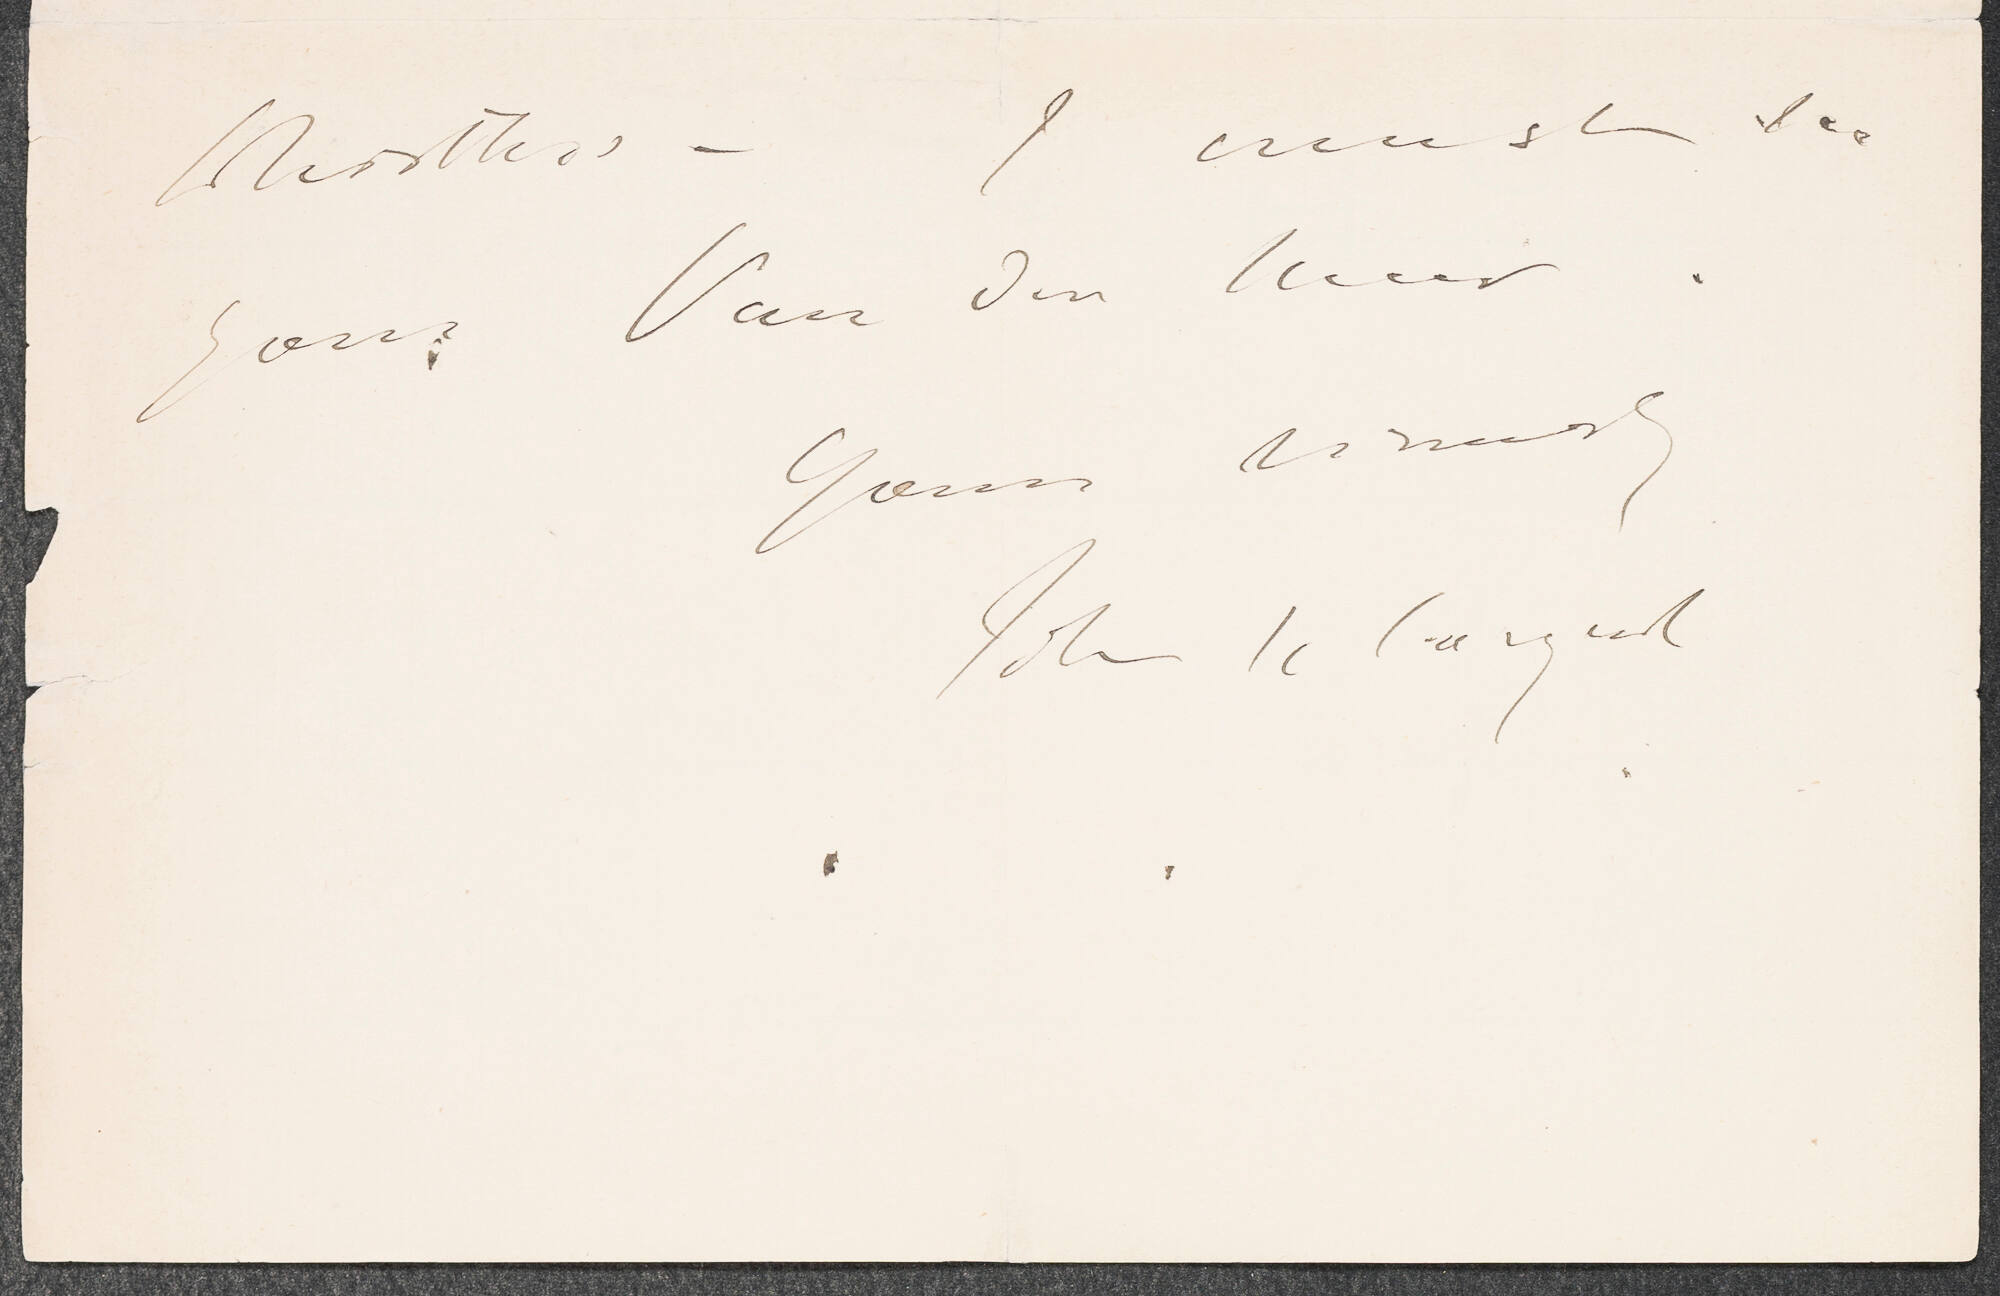 I must see
your Van der Meer.
Yours sincerely
John S. Sargent